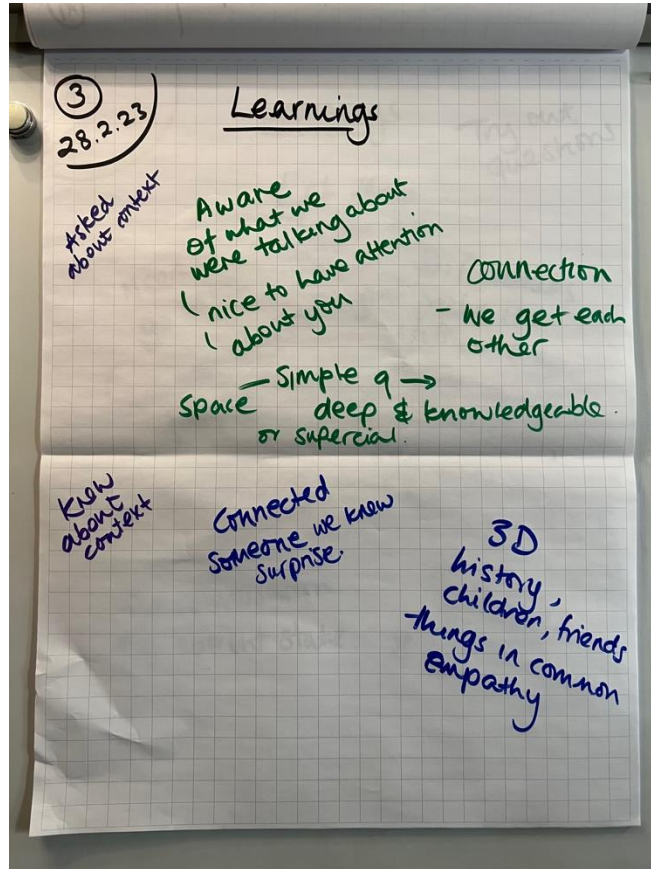 3
28.2.23
Learnings
Asked
about context
Aware
of what we
were talking about
( nice to have attention
( about you
connection
- we get each
other
— Simple q →
space deep & knowledgeable.
or supercial.
Knew
about
context
Connected
Someone we knew
surprise.
3D
history,
children, friends
things in common
empathy